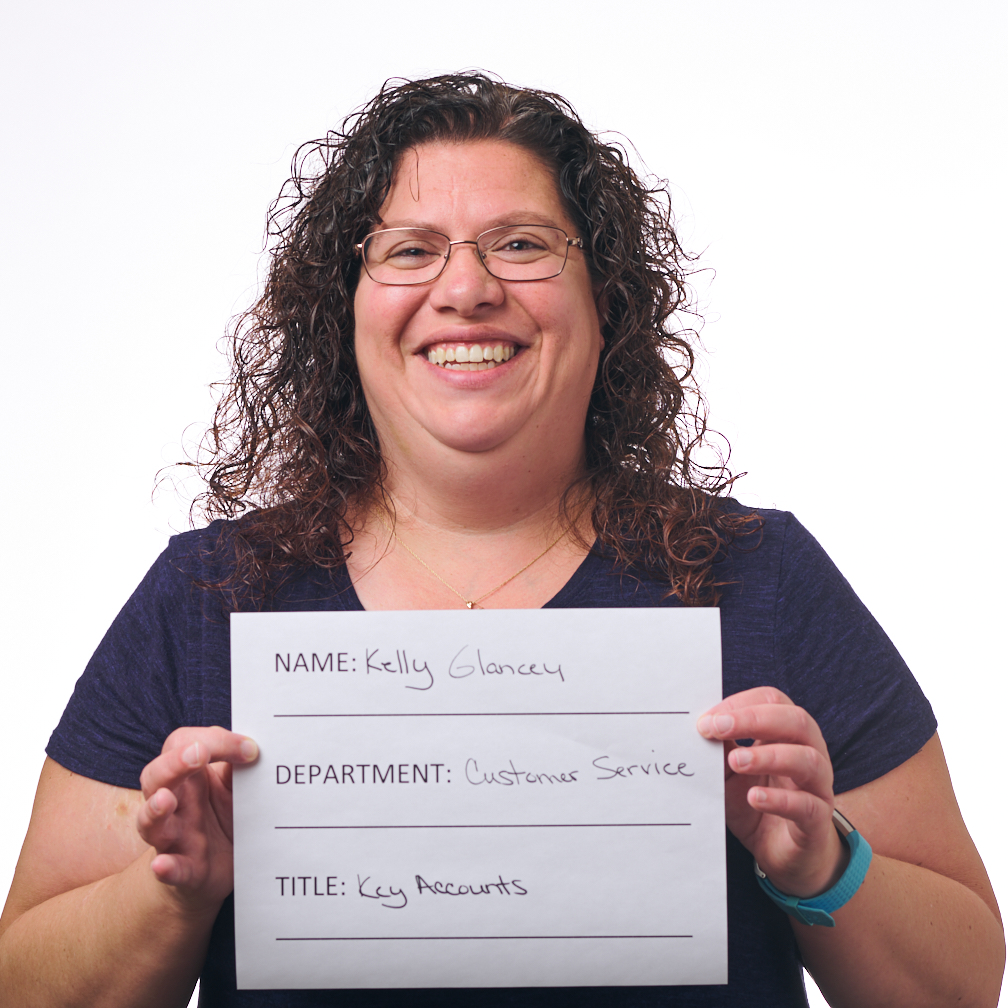 NAME: Kelly Glancey
DEPARTMENT: Customer Service
TITLE: Key Accounts